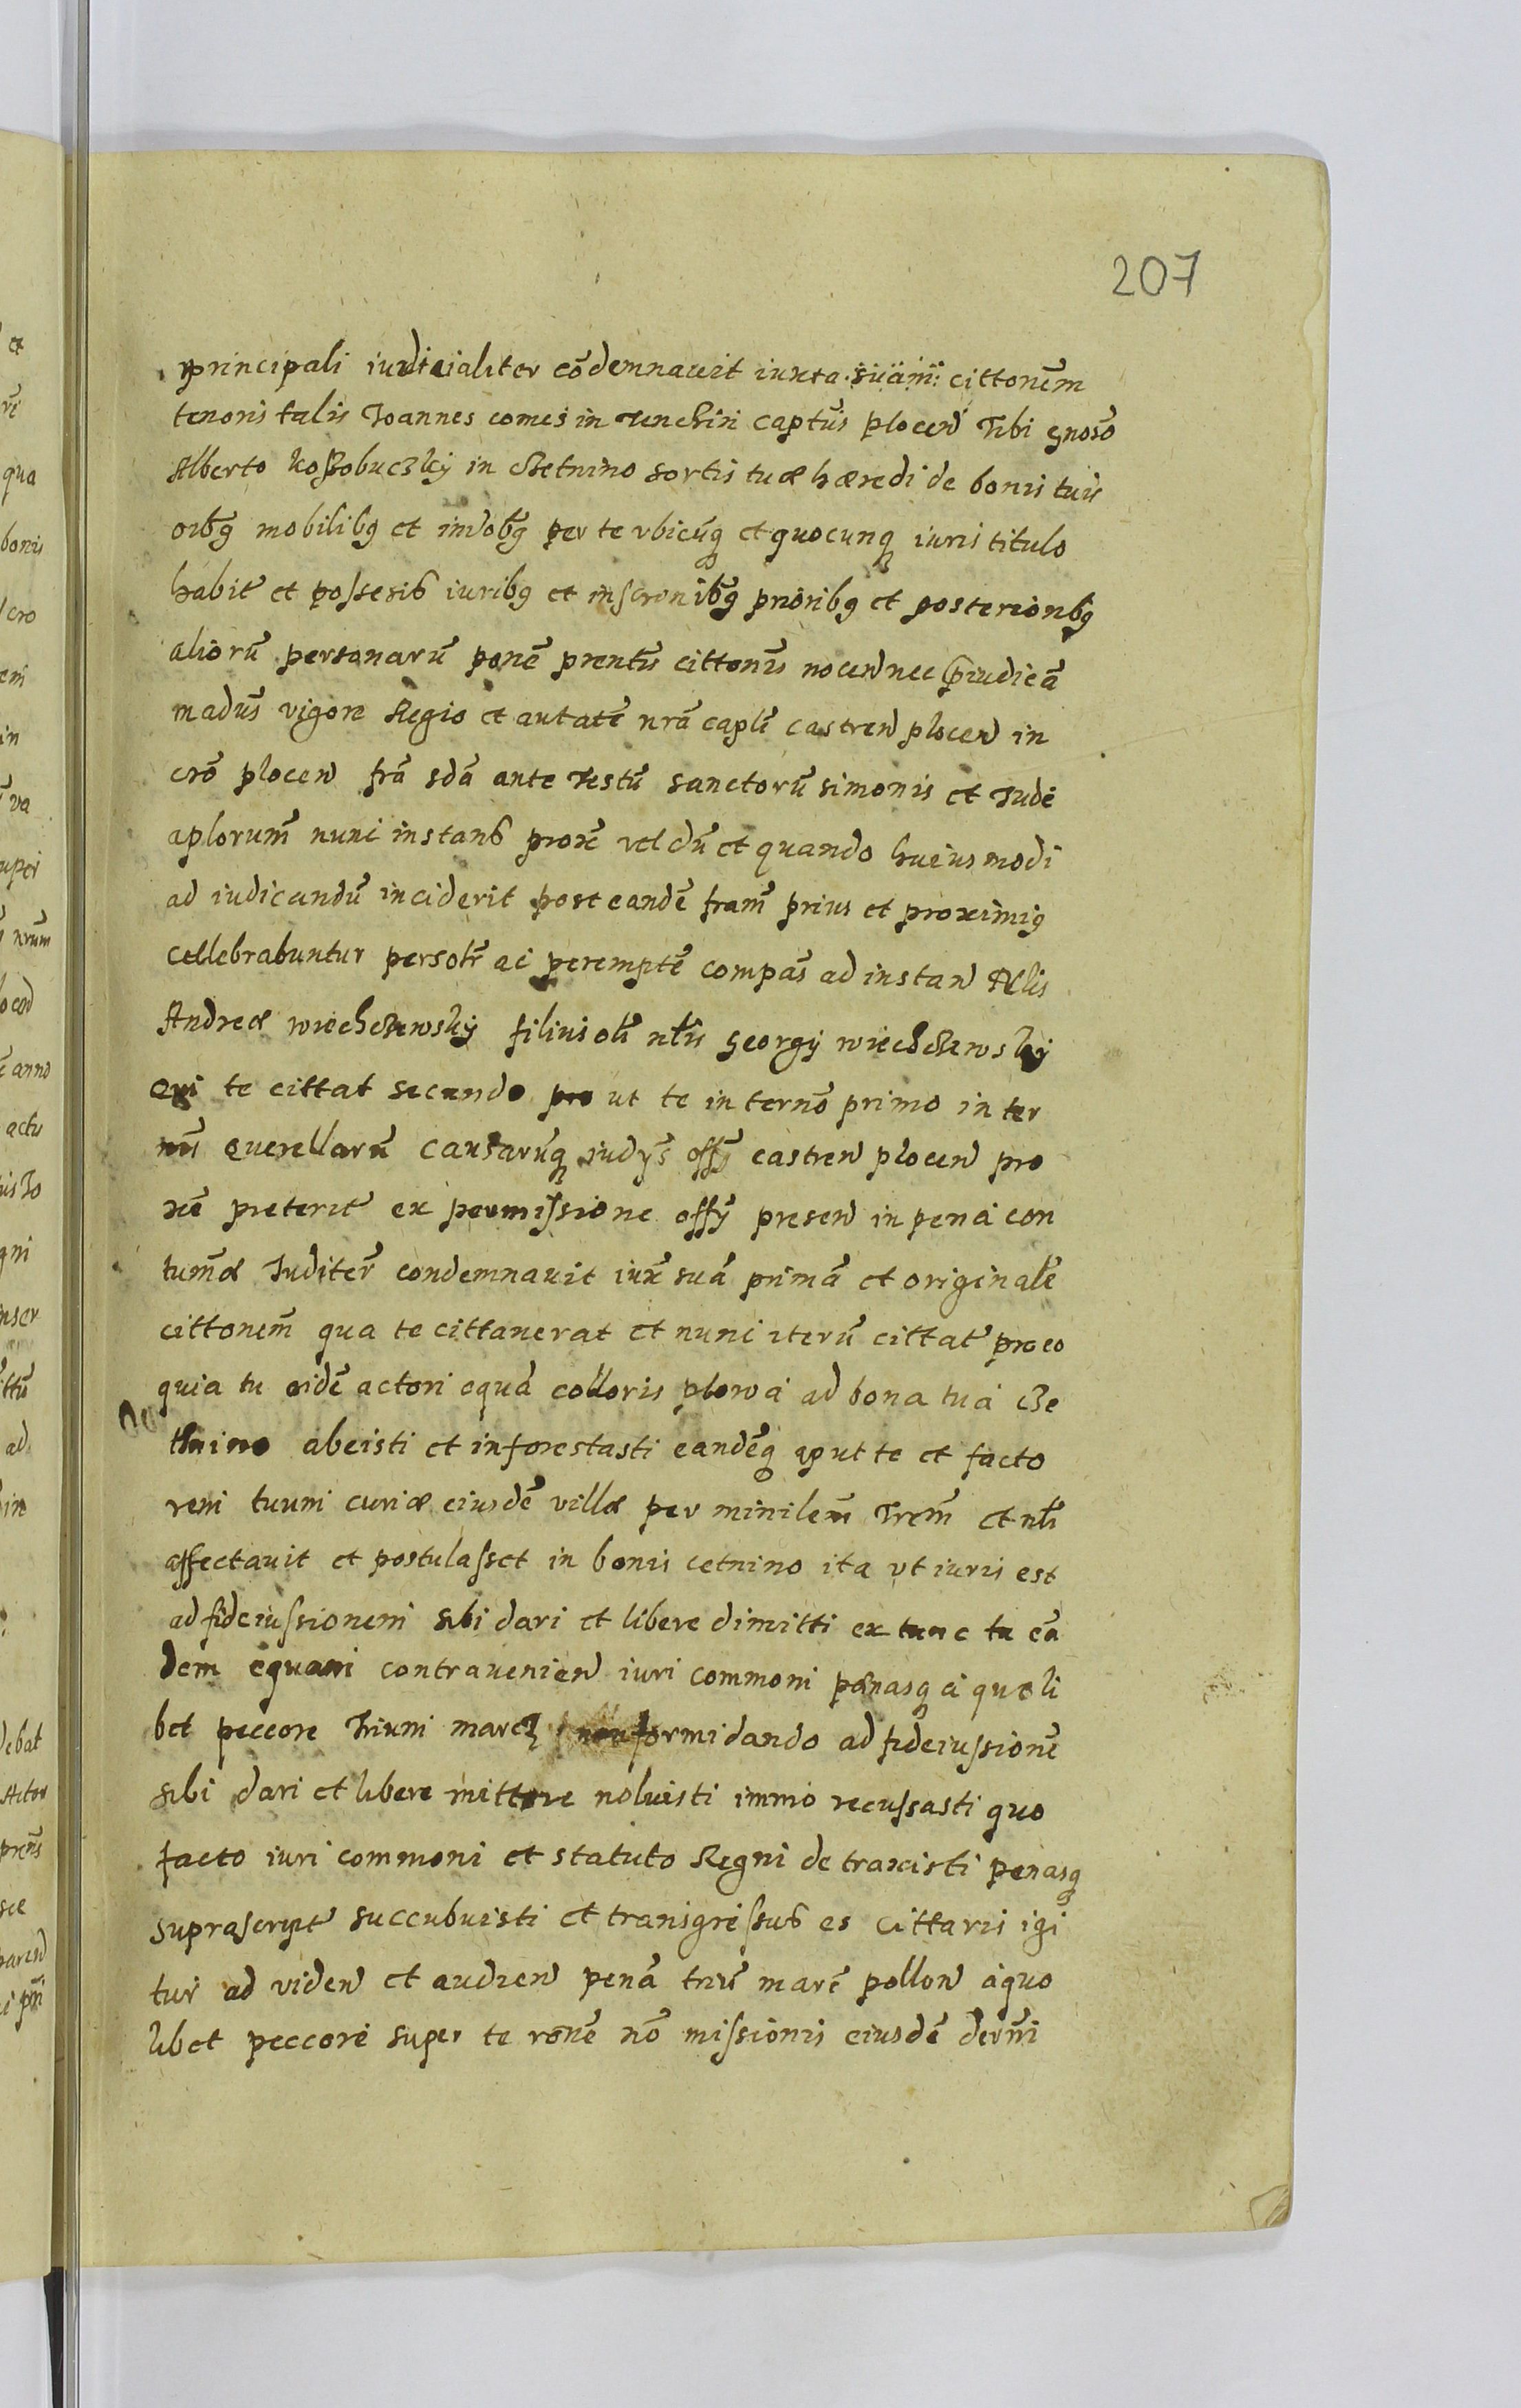 207
principali iudicialiter cōdemnavit iuxta suam cittonēm
tenoris talis Joannes comes in Tenchin captūs plocen̄ Tibi gnosō
Alberto koßobuczky in Czetnino sortis tuæ hæredi de bonis tuis
oībg mobilibg et im̄obg per te ubicūq et quocunq iuris titulo
habit̄ et possessis iuribg et inscronibg prioribg et posterioribg
aliorū personarū ponē prentis cittonīs nocen̄ nec priudicā
madūs vigore Regio et autatē nrā caplī castren̄ plocen̄ in
crō plocen̄ frā sdā ante Festū sanctorū simonis et Jude
aplorum̄ nunc instans prox̄ vel dū et quando huiusmodi
ad iudicandū inciderit post eandē fram̄ prius et proximig
cellebrabuntur persolr̄ ac peremptē compās ad instan̄ Nblis
Andreæ wiechczewsky filius olī nblis Georgy wiechczewsky
qui te cittat secundo pro ut te in ternō primo in ter
nū querellarū causarūq iudys̄ offy castren̄ plocen̄ pro
xē preterit̄ ex permissione offy presen̄ in pena con
tum̄æ Juditer̄ condemnavit iux̄ suā primā et originalē
cittonem̄ qua te cittaverat et nunc iterū cittat̄ pro eo
quia tu eidē actori equā colloris plowa ad bona tua Cze
thnino abeisti et inforestasti eandēq aput te et facto
rem tuum curiæ eiusdē villæ per minilem̄ Trem̄ et nbli
affectavit et postulasset in bonis cetnino ita ut iuris est
ad fideiussionem sibi dari et libere dimitti ex tunc tu eā
dem equam contravenien̄ iuri commoni pœnasq a quoli
bet peccore Trium marcz non formidando ad fideiussionē
sibi dari et libere mittere noluisti immo recussasti quo
facto iuri commoni et statuto Regni detraxisti penasq
suprascript̄ succubuisti et transgressus es cittaris igi
tur ad viden̄ et audien̄ penā triū marc̄ pollon̄ a quo
libet peccore super te ronē nō missionis eiusdē decerni